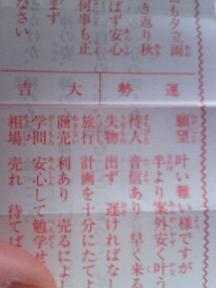 夕立雨
き返り秋
ばず安心
何事も正
なさい
運勢 大吉
願望 叶い難い様ですが
半より案外安く叶う
待人 音信あり 早く来る
失物 出ず 遅ければなし
旅行 計画を十分にたてよ
商売 利あり 売るによし
学問 安心して勉学せ
相場 売れ 待てば